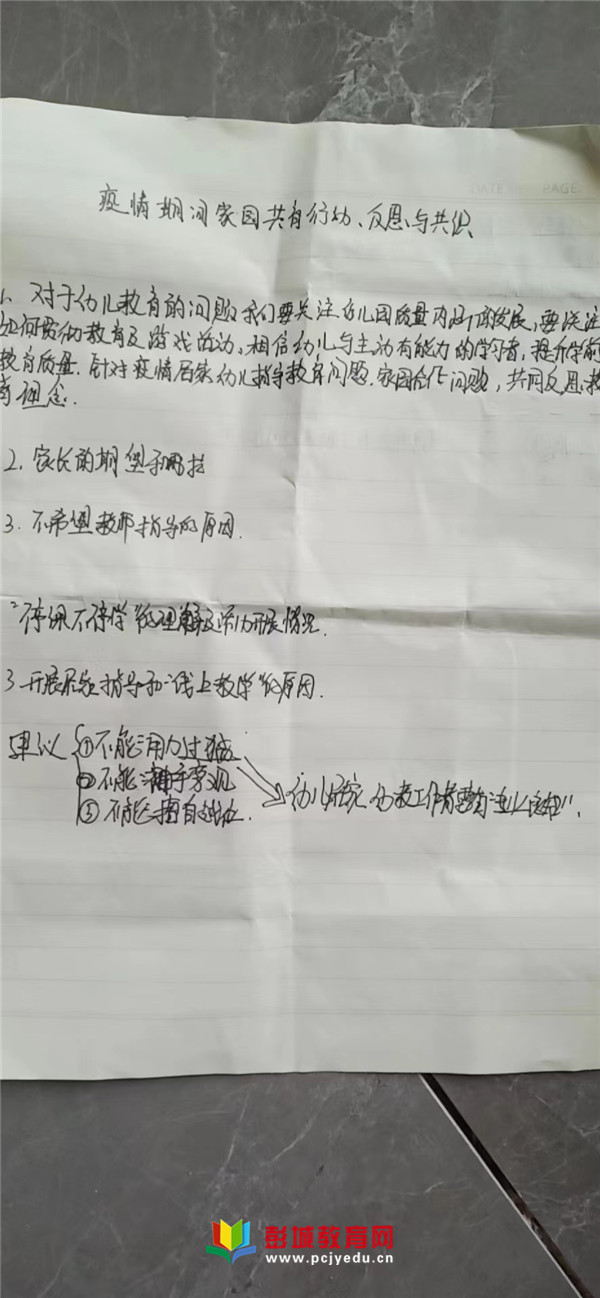 DATE PAGE
疫情期间家园共育行动、反思与共识
1、对于幼儿教育的问题我们要关注幼儿园质量内涵发展,要关注
如何贯幼教育及游戏活动,相信幼儿与主动有能力的学习者,提升学前
教育质量.针对疫情居家幼儿指导教育问题.家园合作问题,共同反思教
育理念.
2.家长的期望
3.不希望教师指导的原因.
"停课不停学"的理解及开展情况.
3.开展居家指导和"线上教学"的原因.
建议
①不能用力过猛
②不能旁观
③不能擅自
幼儿居家 幼教工作者要有
彭城教育网
www.pcjyedu.cn